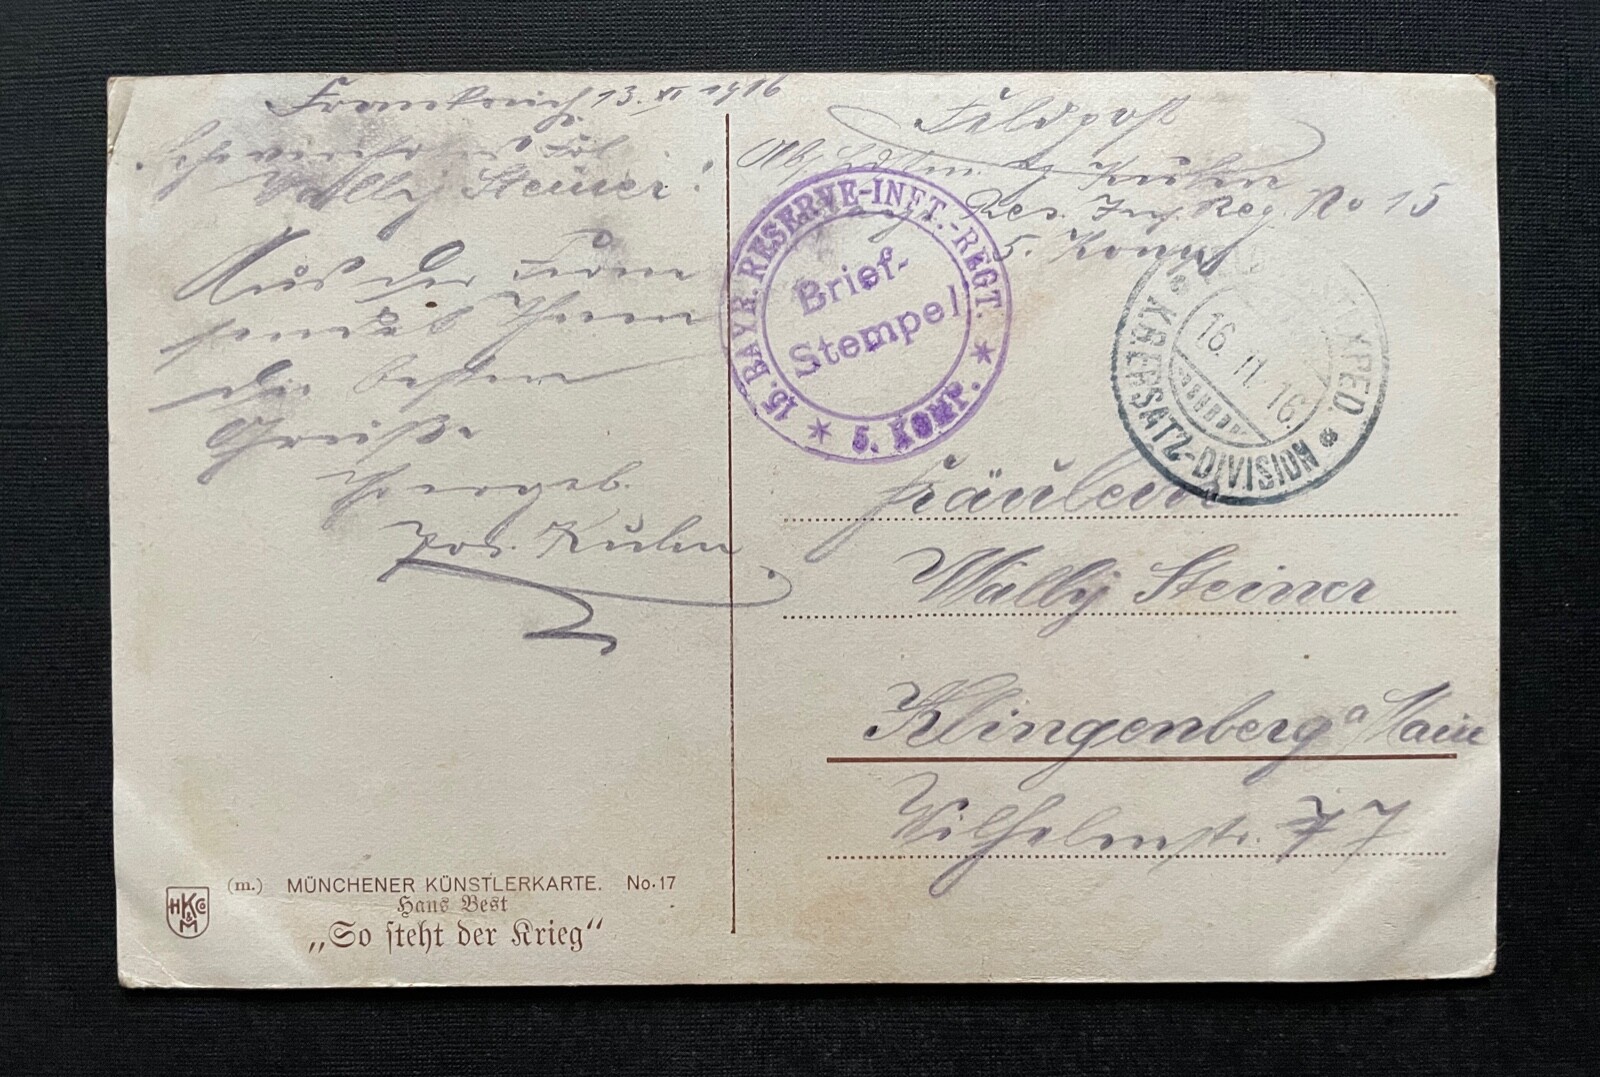 Frankreich, 13. XI 1916
Frl.
Wally Steiner!
Aus der Ferne
sendet Ihnen
die besten
Grüße
Ihr ergeb.
Jos. Kuhn
(m.) MÜNCHENER KÜNSTLERKARTE. No. 17
Hans Best
„So steht der Krieg“
HKCo & M
Feldpost
Abs. Kuhn
Res. Inf. Reg. No 15
5. Komp
15. BAYR. RESERVE-INFT.-REGT. * 5. KOMP. *
Brief-
Stempel
EXPED. * K.B. ERSATZ-DIVISION *
16. 11. 16.
Fräulein
Wally Steiner
Klingenberg a/Main
Wilhelmstr. 77